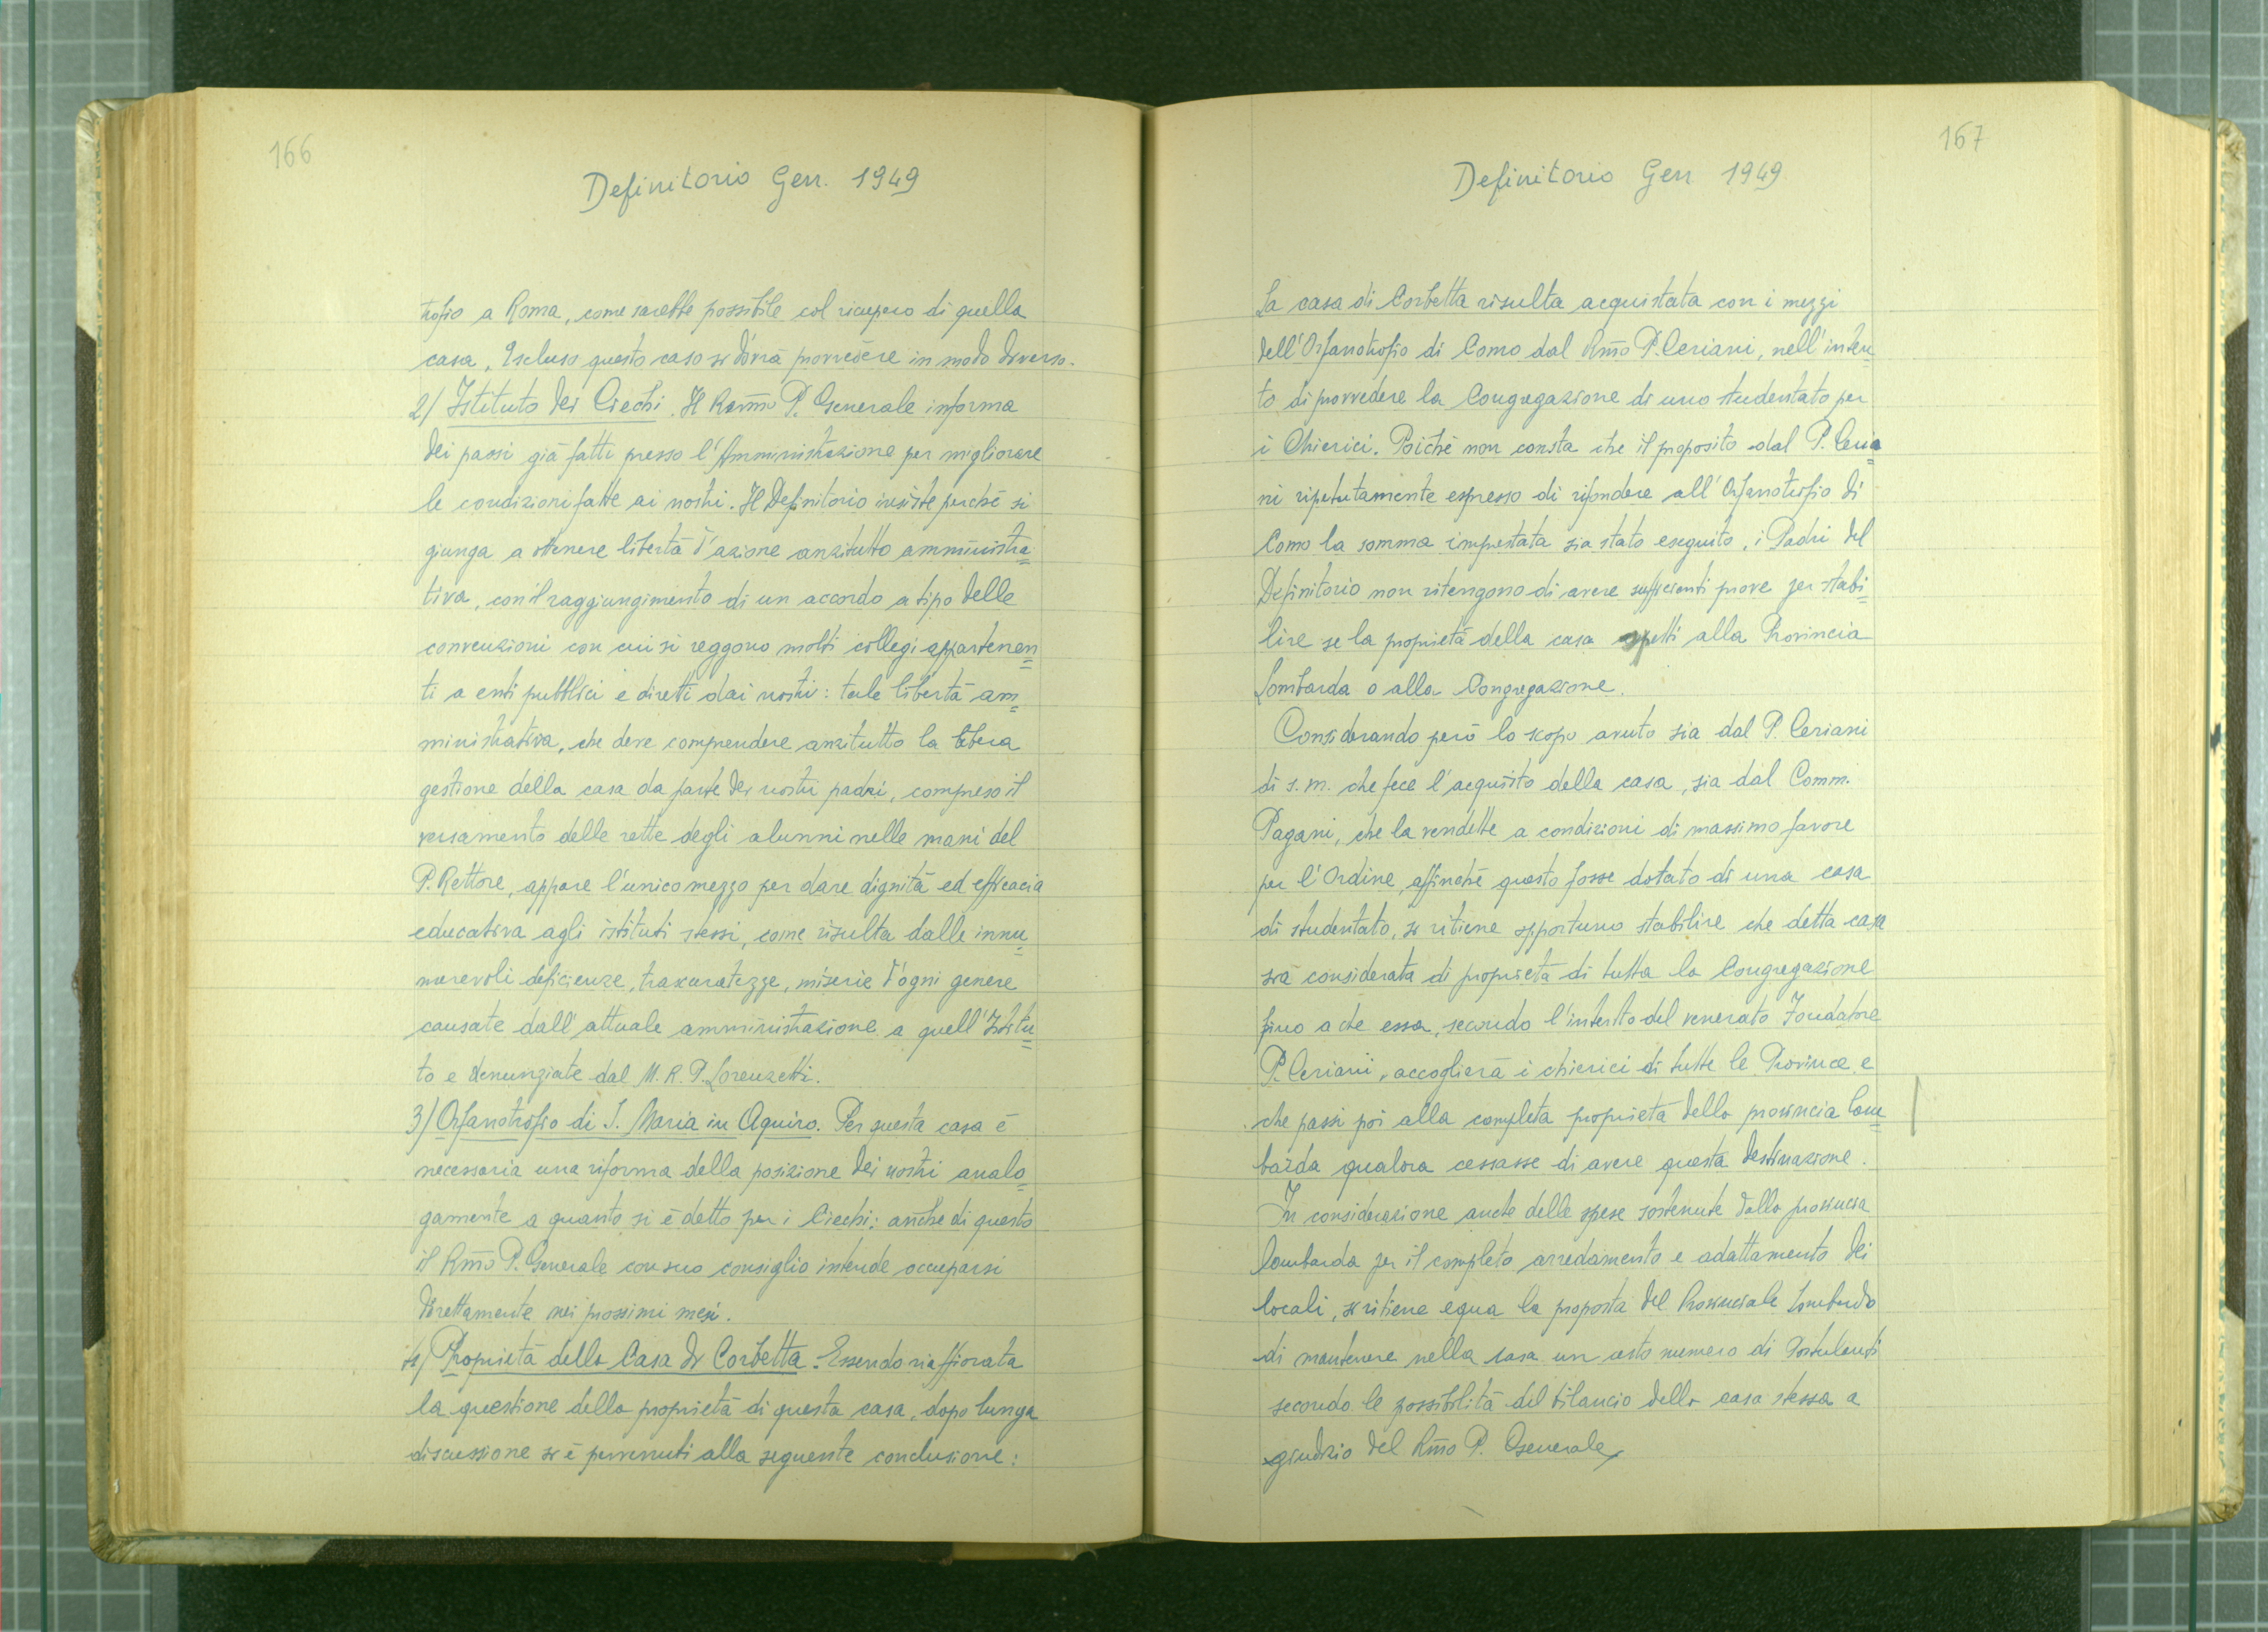 166
Definitorio Gen. 1949
trofio a Roma, come sarebbe possibile col ricupero di quella
casa. Escluso questo caso si dovrà provvedere in modo diverso.
2) Istituto dei Ciechi. Il Rev͞mo P. Generale informa
dei passi già fatti presso l'Amministrazione per migliorare
le condizioni fatte ai nostri. Il Definitorio insiste perché si
giunga a ottenere libertà d'azione anzitutto amministra=
tiva, con il raggiungimento di un accordo a tipo delle
convenzioni con cui si reggono molti collegi appartenen=
ti a enti pubblici e diretti dai nostri: tale libertà am=
ministrativa, che deve comprendere anzitutto la libera
gestione della casa da parte dei nostri padri, compreso il
versamento delle rette degli alunni nelle mani del
P. Rettore, appare l'unico mezzo per dare dignità ed efficacia
educativa agli istituti stessi, come risulta dalle innu=
merevoli deficienze, trascuratezze, miserie d'ogni genere
causate dall'attuale amministrazione a quell'Istitu=
to e denunziate dal M. R. P. Lorenzetti.
3) Orfanotrofio di S. Maria in Aquiro. Per questa casa è
necessaria una riforma della posizione dei nostri analo=
gamente a quanto si è detto per i Ciechi: anche di questo
il R͞mo P. Generale con suo consiglio intende occuparsi
direttamente nei prossimi mesi.
4) Proprietà della Casa di Corbetta. Essendo riaffiorata
la questione della proprietà di questa casa, dopo lunga
discussione si è pervenuti alla seguente conclusione:
167
Definitorio Gen 1949
La casa di Corbetta risulta acquistata con i mezzi
dell'Orfanotrofio di Como dal R͞mo P. Ceriani, nell'inten=
to di provvedere la Congregazione di uno studentato per
i Chierici. Poiché non consta che il proposito dal P. Ceria=
ni ripetutamente espresso di rifondere all'Orfanotrofio di
Como la somma imprestata sia stato eseguito, i Padri del
Definitorio non ritengono di avere sufficienti prove per stabi=
lire se la proprietà della casa spetti alla Provincia
Lombarda o alla Congregazione.
Considerando però lo scopo avuto sia dal P. Ceriani
di s. m. che fece l'acquisto della casa, sia dal Comm.
Pagani, che la vendette a condizioni di massimo favore
per l'Ordine, affinché questo fosse dotato di una casa
di studentato, si ritiene opportuno stabilire che detta casa
sia considerata di proprietà di tutta la Congregazione
fino a che essa, secondo l'intento del venerato Fondatore
P. Ceriani, accoglierà i chierici di tutte le Province e
che passi poi alla completa proprietà della provincia lom=
barda qualora cessasse di avere questa destinazione.
In considerazione anche delle spese sostenute dalla provincia
lombarda per il completo arredamento e adattamento dei
locali, si ritiene equa la proposta del Provinciale Lombardo
di mantenere nella casa un certo numero di Postulanti
secondo le possibilità del bilancio della casa stessa a
giudizio del R͞mo P. Generale